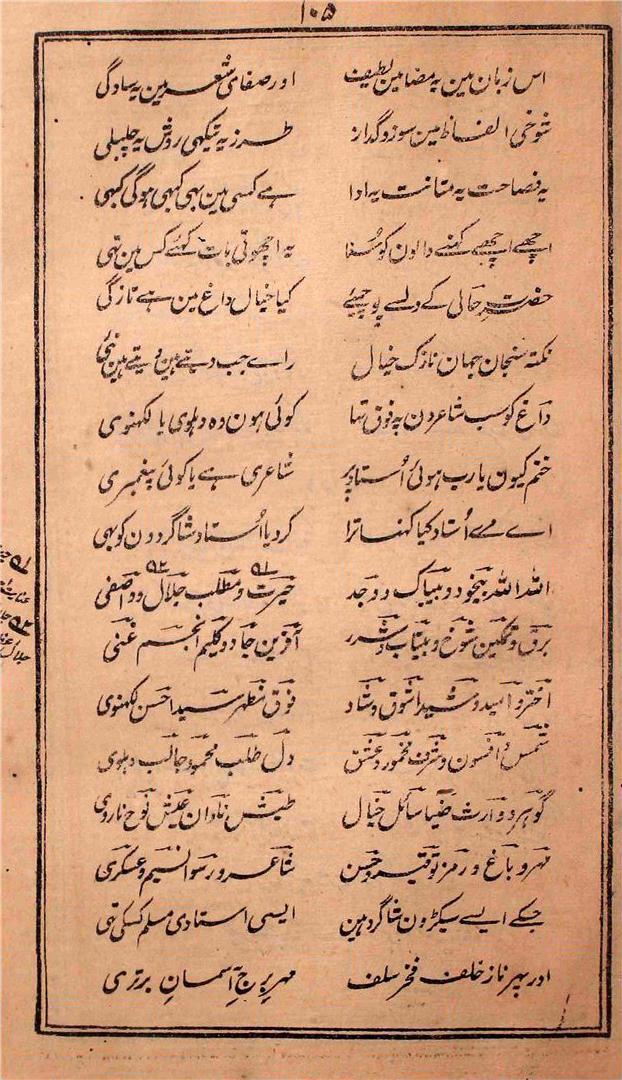 ۱۰۵
اس زبان مین یہ مضامین لطیف اور صفای شعر مین یہ سادگی
شوخی الفاظ مین سوز و گداز طرز یہ تیکھی روش یہ چلبلی
یہ فصاحت یہ متانت یہ ادا اے کسی مین بہی کبہی ہوگی کبہی
اچھے اچھے کہنے والون کو سُنا یہ اچھوتی بات کہئے کس مین تہی
حضرتِ حالی کے دلسے پوچہیے کیا خیال داغ مین ہے تازگی
نکتہ سنجان جہان نازک خیال راے جب دیتے ہین دیتے ہین یہی
داغ کو سب شاعرون پہ فوق تہا کوئی ہون وہ دہلوی یا لکہنوی
ختم کیون یارب ہوئی اُستاد پر شاعری ہے یا کوئی پیغمبری
اے مرے اُستاد کیا کہنا ترا کر دیا اُستاد شاگردون کو بہی
اللہ اللہ بیخود و بیباک و وجد حیرت و مطلب جلال و واصفی
برق و تمکین شوخ و بیتاب و شرر آفرین جادو کلیم انجم غنی
اختر و اُمید و شیدا شوق و شاد فوق مظہر سید احسن لکہنوی
شمس و افسون و شرف مخمور و عشق دل طلب محمود جالب دہلوی
گوہر و وارث ضیا سائل خیال طیش نادان عیش نوح ناروی
مہر و باغ و رمز توقیر و حسن شاعر و رسوا نسیم و عسکری
جسکے ایسے سیکڑون شاگرد ہین ایسی استادی مسلم کسکی تہی
اور بہر ناز خلف فخر سلف مہر برج آسمانِ برتری
۹۱
۹۲